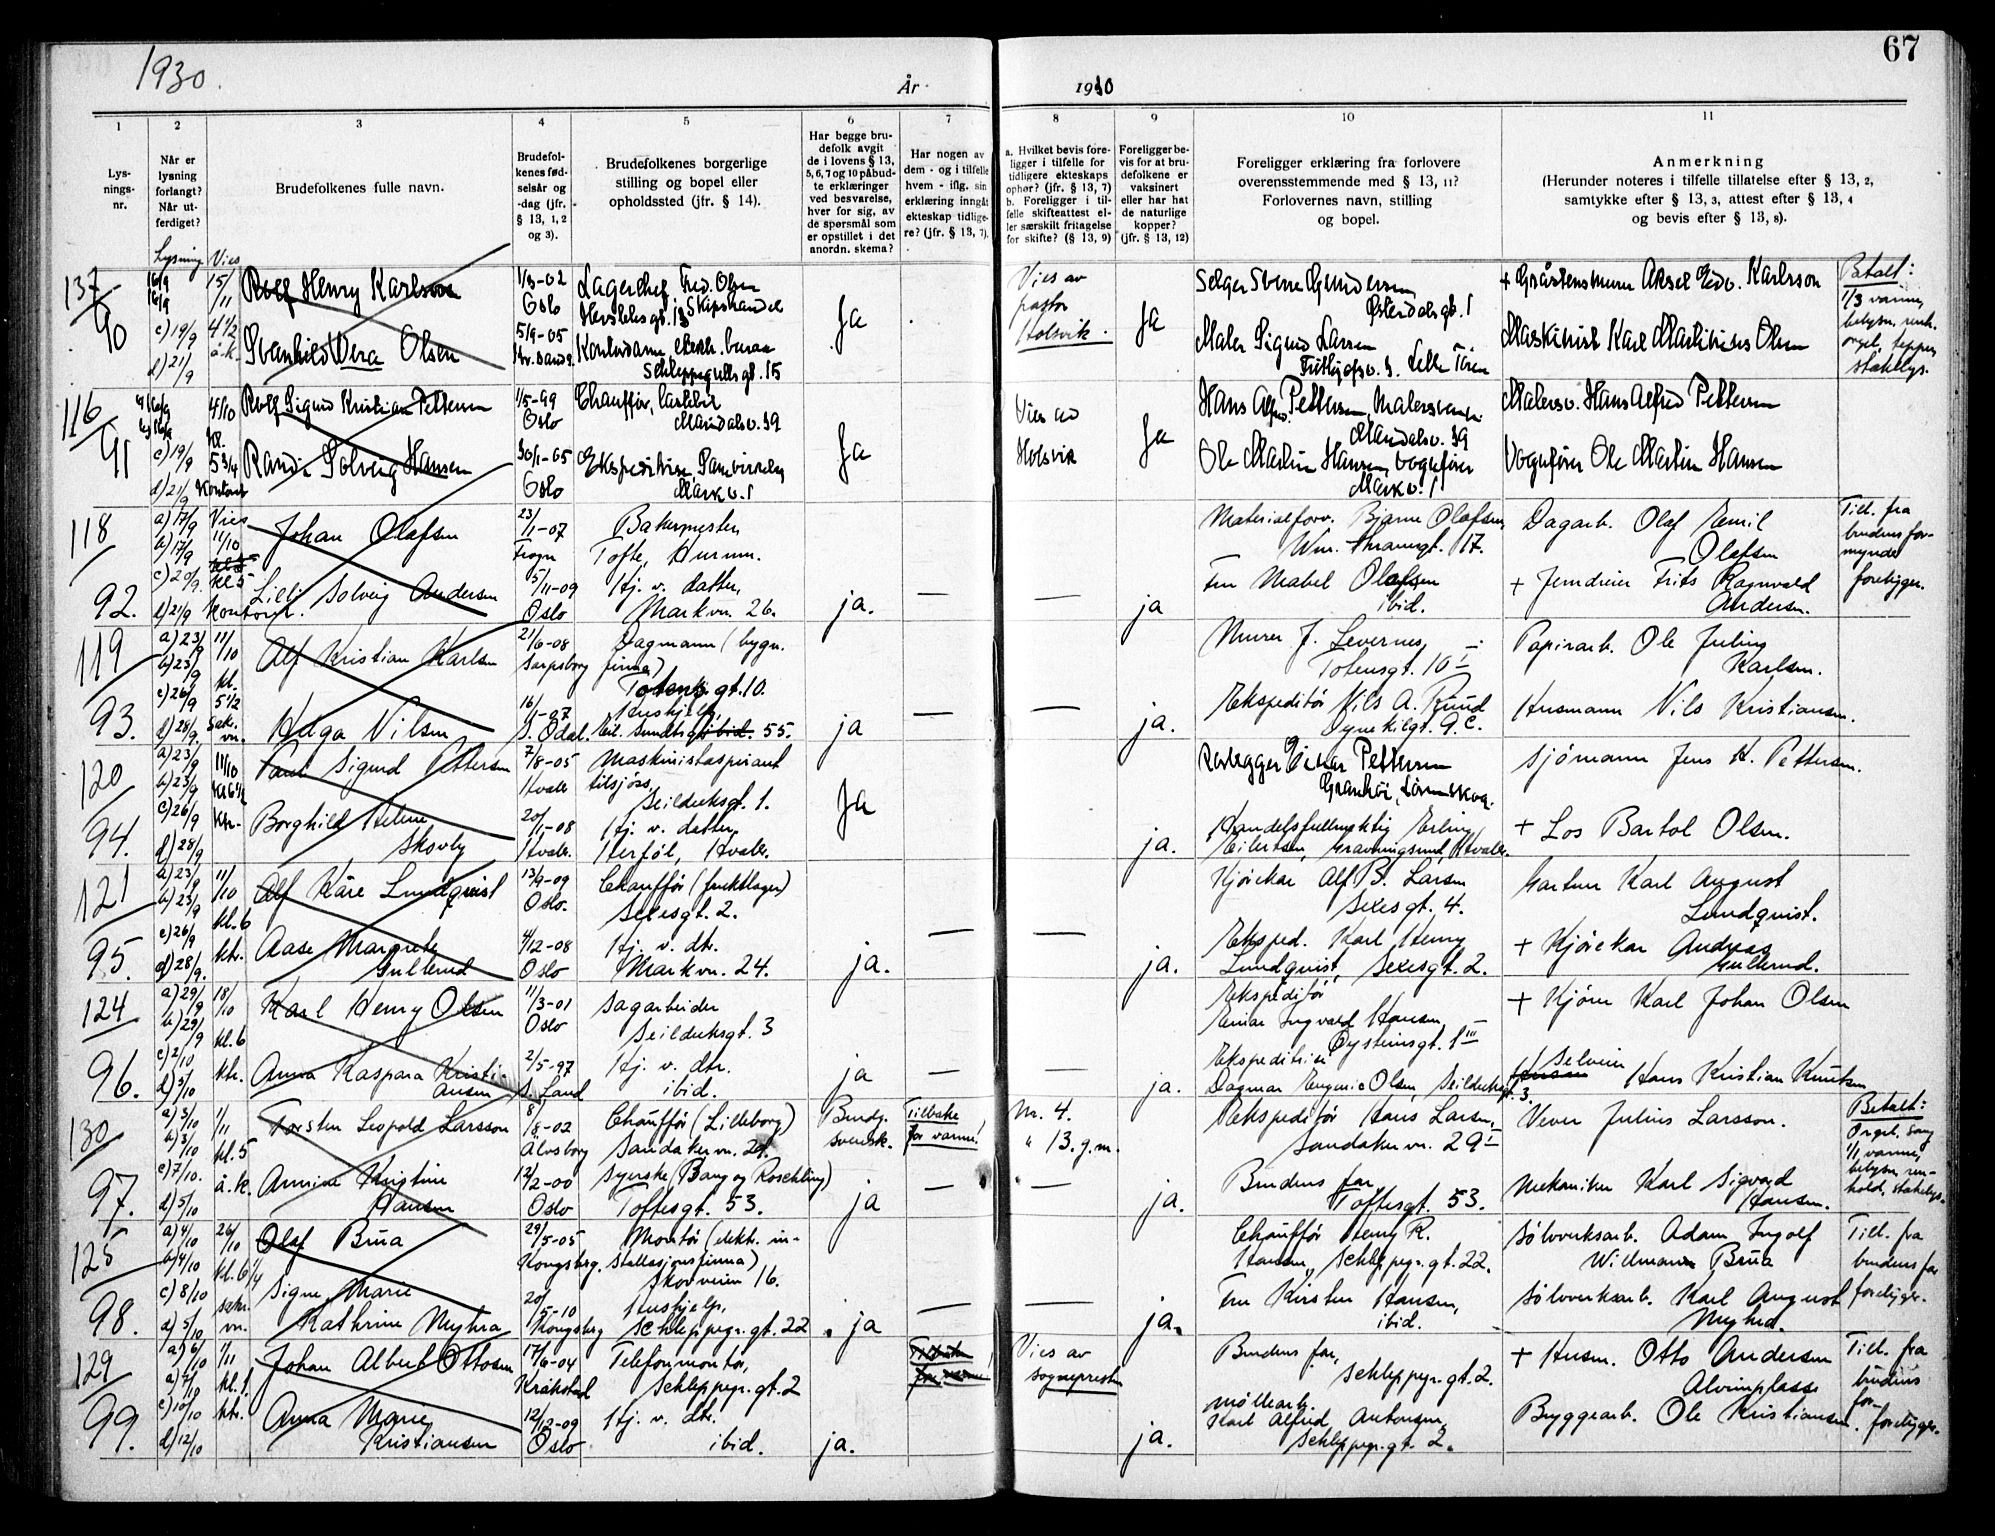 1930.
År
1930
67
1
2
3
4
5
6
7
8
9
10
11
Lys-
nings-
nr.
Når er
lysning
forlangt?
Når ut-
ferdiget?
Brudefolkenes fulle navn.
Brudefol-
kenes fød-
selsår og
-dag (jfr.
§ 13, 1, 2
og 3).
Brudefolkenes borgerlige
stilling og bopel eller
opholdssted (jfr. § 14).
Har begge bru-
defolk avgit
de i lovens § 13,
5, 6, 7 og 10 påbud-
te erklæringer
ved besvarelse,
hver for sig, av
de spørsmål som
er opstillet i det
anordn. skema?
Har nogen av
dem - og i tilfelle
hvem - iflg. sin
erklæring inngåt
ekteskap tidlige-
re? (jfr. § 13, 7).
a. Hvilket bevis fore-
ligger i tilfelle for
tidligere ekteskaps
ophør? (jfr. § 13, 7)
b. Foreligger i til-
felle skifteattest el-
ler særskilt fritagelse
for skifte? (§ 13, 9)
Foreligger be-
vis for at bru-
defolkene er
vaksinert
eller har hat
de naturlige
kopper?
(jfr. § 13, 12)
Foreligger erklæring fra forlovere
overensstemmende med § 13, 11?
Forlovernes navn, stilling
og bopel.
Anmerkning
(Herunder noteres i tilfelle tillatelse efter § 13, 2,
samtykke efter § 13, 3, attest efter § 13, 4
og bevis efter § 13, 8).
Lysning Vies
137
90
16/9
16/9
c) 19/9
d) 21/9
15/11
4 1/2
å.k.
Rolf Henry Karlsson
1/3-02
Oslo
Lagerchef Fred. Olsen
Skipshandel
Svanhild Vera Olsen
5/9-05
Kontordame
Schleppegrells gt. 15
Ja
Vies av
pastor
Holsvik.
Ja
Selger Sverre Gundersen
Østerdalsgt. 1
Maler Sigurd Larsen
+ Gråstensmurer Aksel Edv. Karlsson
Maskinist Karl Martinius Olsen
Betalt:
1/3 varme,
116
91
16/9
c) 19/9
d) 21/9
4/10
kl.
5 3/4
Kontoret
Rolf Sigurd Kristian Pettersen
1/5-99
Oslo
Chauffør,
Maridalsv. 39
Randi Solveig Hansen
30/1-05
Oslo
Markv. 1
Ja
Vies av
Holsvik
Ja
Hans Alfr. Pettersen, Malersvend
Maridalsv. 39
Ole Martin Hansen, Vognfører
Markv. 1
Malersv. Hans Alfred Pettersen
Vognfører Ole Martin Hansen
118
92.
a) 17/9
b) 17/9
c) 20/9
d) 21/9
Vies
11/10
kl 5
kontoret.
Johan Olafsen
23/1-07
Frogn
Bakermester,
Tofte, Hurum.
Lilli Solveig Andersen
5/11-09
Oslo
Hj. v. datter,
Markvn. 26.
ja.
—
—
ja
Materialforv. Bjarne Olafsen,
Wm. Thranesgt. 17.
Fru Mabel Olafsen
ibid.
Dagarb. Olaf Emil
Olafsen
+ Jerndreier Frits Ragnvald
Andersen.
Till. fra
brudens for-
mynder
foreligger.
119
93.
a) 23/9
b) 23/9
c) 26/9
d) 28/9.
11/10
kl.
5 1/2
sak.
vn.
Alf Kristian Karlsen
21/6-08
Sarpsborg
Dagmann (bygn.
firma)
Totensgt. 10.
Helga Nilsen
16/1-07
S. Odal.
Hushjelp,
Eil. Sundts gt. ibid. 55.
ja
—
—
ja.
Murer J. Levernes,
Totensgt. 10 I
Ekspeditør Nils A. Ruud
Dynekilgt. 9 c.
Papirarb. Ole Julius
Karlsen.
Husmann Nils Kristiansen.
120
94.
a) 23/9
b) 23/9
c) 26/9
d) 28/9
11/10
Kl 6 1/2
Ktr.
Paul Sigurd Pettersen
7/8-05
Hvaler
Maskinistaspirant
tilsjøss,
Seilduksgt. 1.
Borghild Helene
Skovby
20/1-08
Hvaler.
Hj. v. datter,
Herføl, Hvaler.
Ja
ja.
Rørlegger Einar Pettersen
Granhøi, Lørenskog.
Handelsfullmektig Erling
Eilertsen, Gravningsund, Hvaler.
Sjømann Jens H. Pettersen.
+ Los Bartol Olsen.
121
95.
a) 23/9
b) 23/9
c) 26/9
d) 28/9.
11/10
kl. 6
ktr.
Alf Kåre Lundqvist
13/9-09
Oslo.
Chauffør (fruktlager)
Sexesgt. 2.
Aase Margrete
Gullerud
4/12-08
Oslo
Hj. v. dtr.
Markvn. 24.
ja.
—
—
ja.
Kjørekar Alf B. Larsen
Sexesgt. 4.
Eksped. Karl Henry
Lundqvist, Sexesgt. 2.
Gartner Karl August
Lundqvist.
+ Kjørekar Andreas
Gullerud.
124
96.
a) 29/9
b) 29/9
c) 2/10
d) 3/10
18/10
kl. 6
ktr.
Karl Henry Olsen
11/3-01
Oslo
Sagarbeider
Seilduksgt. 3
Anna Kaspara Kristi-
ansen
2/5-97
S. Land
Hj. v. dtr.
ibid.
ja
—
—
ja.
Ekspeditør
Einar Ingvald Hansen,
Øysteinsgt. 1 III
Ekspeditrise
Dagmar Eugenie Olsen, Seilduksgt. 3.
+ Kjører Karl Johan Olsen
Selveier
Hans Kristian Knutsen
130
97.
a) 3/10
b) 3/10
c) 7/10.
d) 5/10
1/11
kl. 5
å.k.
Torsten Leopold Larsson
8/8-02
Älvsborg
Chauffør (Lilleborg)
Sandakervn. 29.
Annine Kristine
Hansen
12/2-00
Oslo
Syerske (Bang og Roschling)
Toftesgt. 53.
Brudg.
svensk.
ja
Tilbake
for varme!
—
Nr. 4.
" 13. g. m.
—
ja.
Ekspeditør Hans Larsen,
Sandakervn. 29 I
Brudens far,
Toftesgt. 53.
Vever Julius Larsson.
Mekaniker Karl Sigvard
Hansen.
Betalt:
Orgel, sang
1/1 varme,
belysn, ren-
hold, stakelys.
125
98.
a) 4/10
b) 4/10
c) 8/10
d) 5/10,
26/10
kl. 6 1/4
sakr.
vn.
Olaf Brua
29/5-05
Kongsberg.
Montør (elektr. in-
stallasjonsfirma)
Skovveien 16.
Signe Marie
Kathrine Myhra
20/5-10
Kongsberg
Hushjelp,
Schleppegr. gt. 22
ja
—
—
ja.
Chauffør Henry R.
Hansen, Schleppegr. gt. 22.
Fru Kirsten Hansen,
ibid.
Sølvverksarb. Adam Ingolf
Willmann Brua
Sølvverksarb. Karl August
Myhra.
Till. fra
brudens far
foreligger.
129
99.
a) 6/10
b) 7/10
c) 10/10
d) 12/10
1/11
kl. 1.
ktr.
Johan Albert Ottosen
17/6-04
Kråkstad
Telefonmontør,
Schleppegr. gt. 2
Anna Marie
Kristiansen
12/12-09
Oslo
Hj. v. dtr.
ibid.
ja.
Tilbake
for varme!
Vies av
sogneprest
ja.
Brudens far,
Schleppegr. gt. 2.
Møllearb.
Karl Alfred Antonsen,
Schleppegr. gt. 2.
+ Husm. Otto Andersen
Alvimplasse
Bryggearb. Ole Kristiansen.
Till. fra
brudens
for-
foreligger.